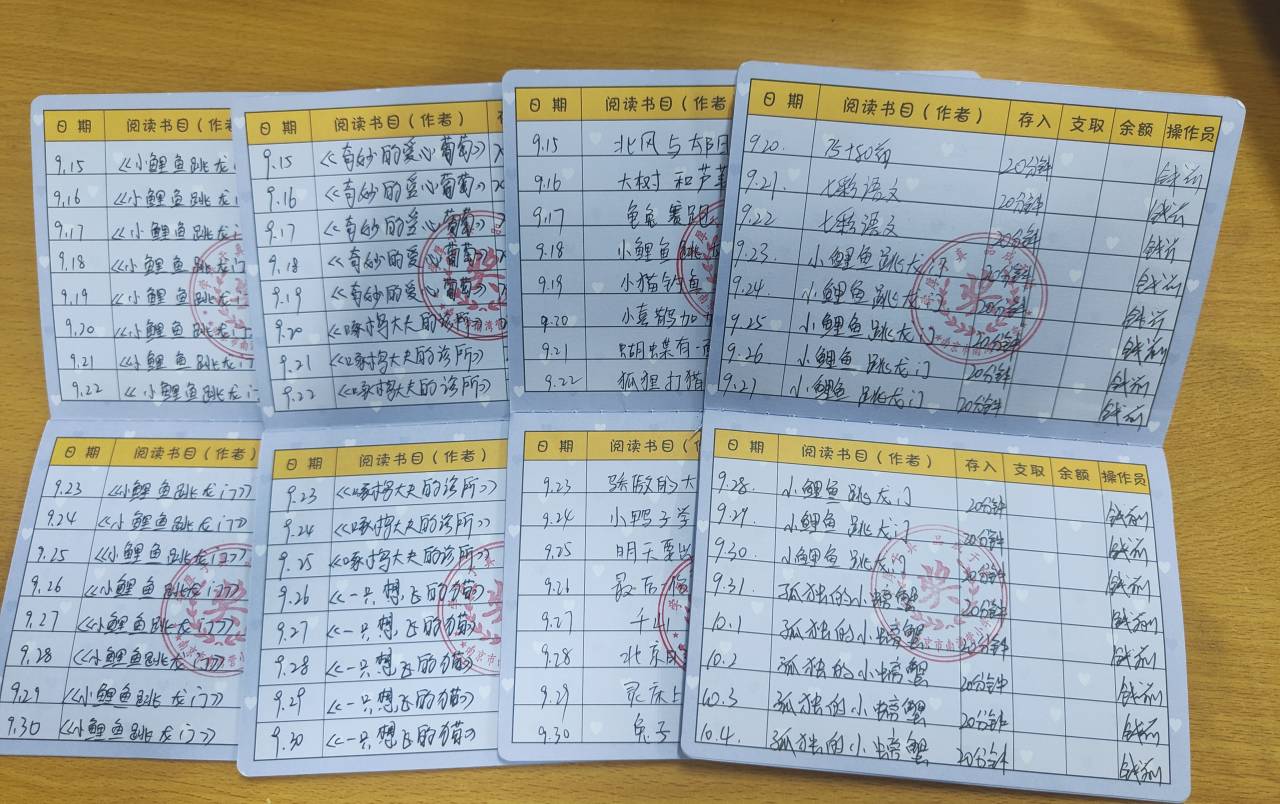 日 期 阅读书目(作者
9.15 《小鲤鱼跳龙门
9.16 《小鲤鱼跳龙门
9.17 《小鲤鱼跳龙门
9.18 《小鲤鱼跳龙门
9.19 《小鲤鱼跳龙门
9.20 《小鲤鱼跳龙门
9.21 《小鲤鱼跳龙门
9.22 《小鲤鱼跳龙门
日 期 阅读书目(作者)
9.23 《小鲤鱼跳龙门》
9.24 《小鲤鱼跳龙门》
9.25 《小鲤鱼跳龙门》
9.26 《小鲤鱼跳龙门》
9.27 《小鲤鱼跳龙门》
9.28 《小鲤鱼跳龙门》
9.29 《小鲤鱼跳龙门》
9.30 《小鲤鱼跳龙门》
日 期 阅读书目(作者)
9.15 《奇妙的爱心葡萄》
9.16 《奇妙的爱心葡萄》
9.17 《奇妙的爱心葡萄》
9.18 《奇妙的爱心葡萄》
9.19 《奇妙的爱心葡萄》
9.20 《啄木鸟大夫的诊所》
9.21 《啄木鸟大夫的诊所》
9.22 《啄木鸟大夫的诊所》
日 期 阅读书目(作者)
9.23 《啄木鸟大夫的诊所》
9.24 《啄木鸟大夫的诊所》
9.25 《啄木鸟大夫的诊所》
9.26 《一只想飞的猫》
9.27 《一只想飞的猫》
9.28 《一只想飞的猫》
9.29 《一只想飞的猫》
9.30 《一只想飞的猫》
日 期 阅读书目(作者
9.15 北风与太阳
9.16 大树和芦苇
9.17 龟兔赛跑
9.18 小鲤鱼跳龙
9.19 小猫钓鱼
9.20 小喜鹊加加
9.21 蝴蝶有一面
9.22 狐狸打猎
日 期 阅读书目(
9.23 骄傲的大
9.24 小鸭子学
9.25 明天要出
9.26 最后一
9.27 千山
9.28 北京
9.29 床上
9.30 兔子
日 期 阅读书目(作者) 存入 支取 余额 操作员
9.20. 20分钟
9.21. 七彩语文 20分钟
9.22 七彩语文 20分钟
9.23. 小鲤鱼跳龙门 20分钟
9.24. 小鲤鱼跳龙门 20分钟
9.25 小鲤鱼跳龙门 20分钟
9.26 小鲤鱼跳龙门 20分钟
9.27 小鲤鱼跳龙门 20分钟
日 期 阅读书目(作者) 存入 支取 余额 操作员
9.28. 小鲤鱼跳龙门 20分钟
9.29. 小鲤鱼跳龙门 20分钟
9.30. 小鲤鱼跳龙门 20分钟
9.31. 孤独的小螃蟹 20分钟
10.1 孤独的小螃蟹 20分钟
10.2 孤独的小螃蟹 20分钟
10.3 孤独的小螃蟹 20分钟
10.4. 孤独的小螃蟹 20分钟